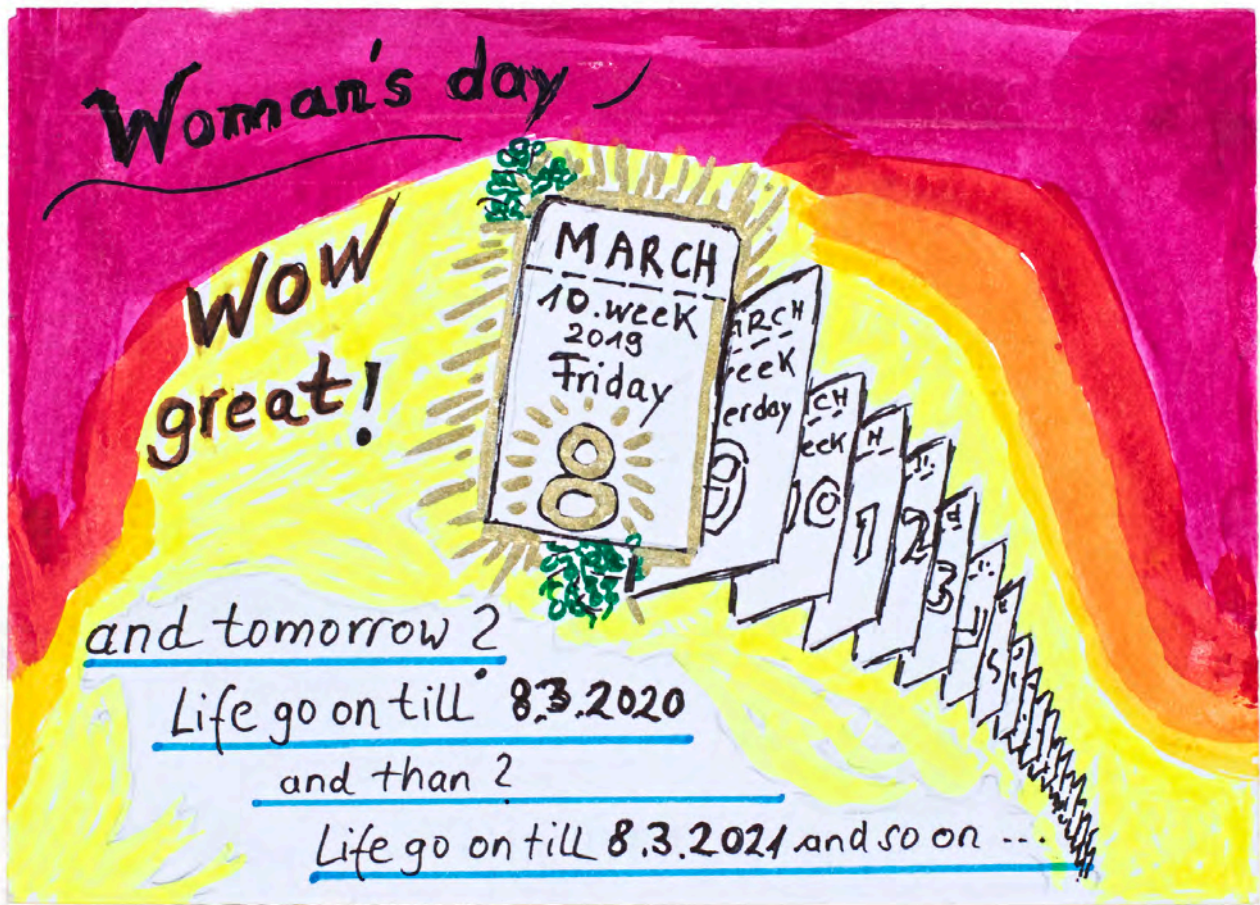 Woman's day
Wow
great!
MARCH
10. week
2019
Friday
8
ARCH
eek
erday
9
CH
eek
10
H
1
2
3
4
5
and tomorrow?
Life go on till 8.3.2020
and than?
Life go on till 8.3.2021 and so on ...